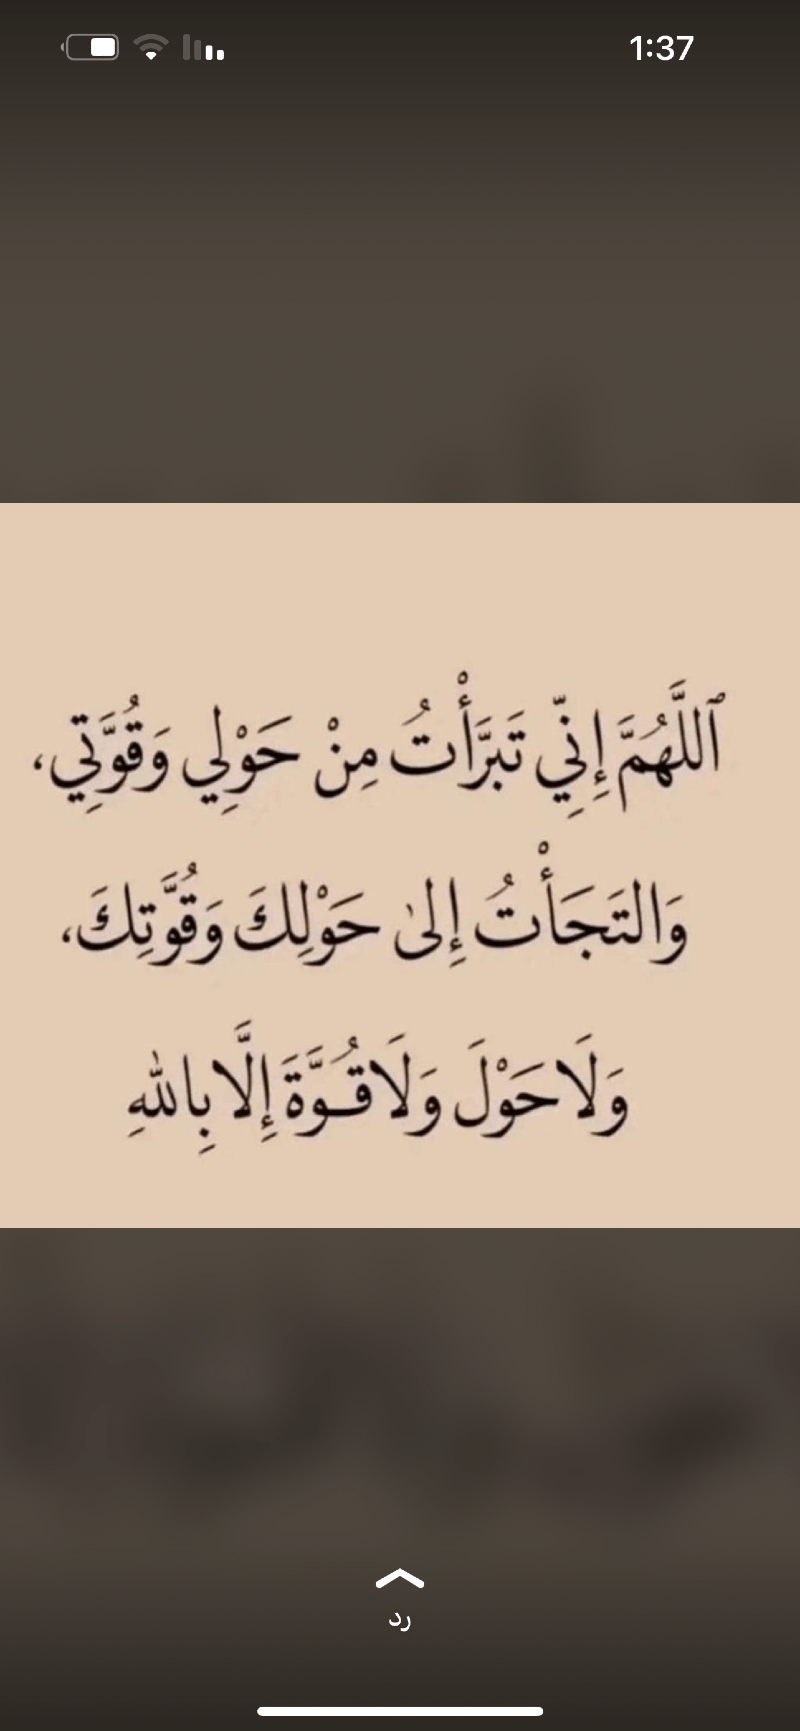 1:37
ٱللَّهُمَّ إِنِّي تَبَرَّأْتُ مِنْ حَوْلِي وَقُوَّتِي،
وَالتَجَأْتُ إِلىٰ حَوْلِكَ وَقُوَّتِكَ،
وَلَا حَوْلَ وَلَا قُـوَّةَ إِلَّا بِاللهِ
رد